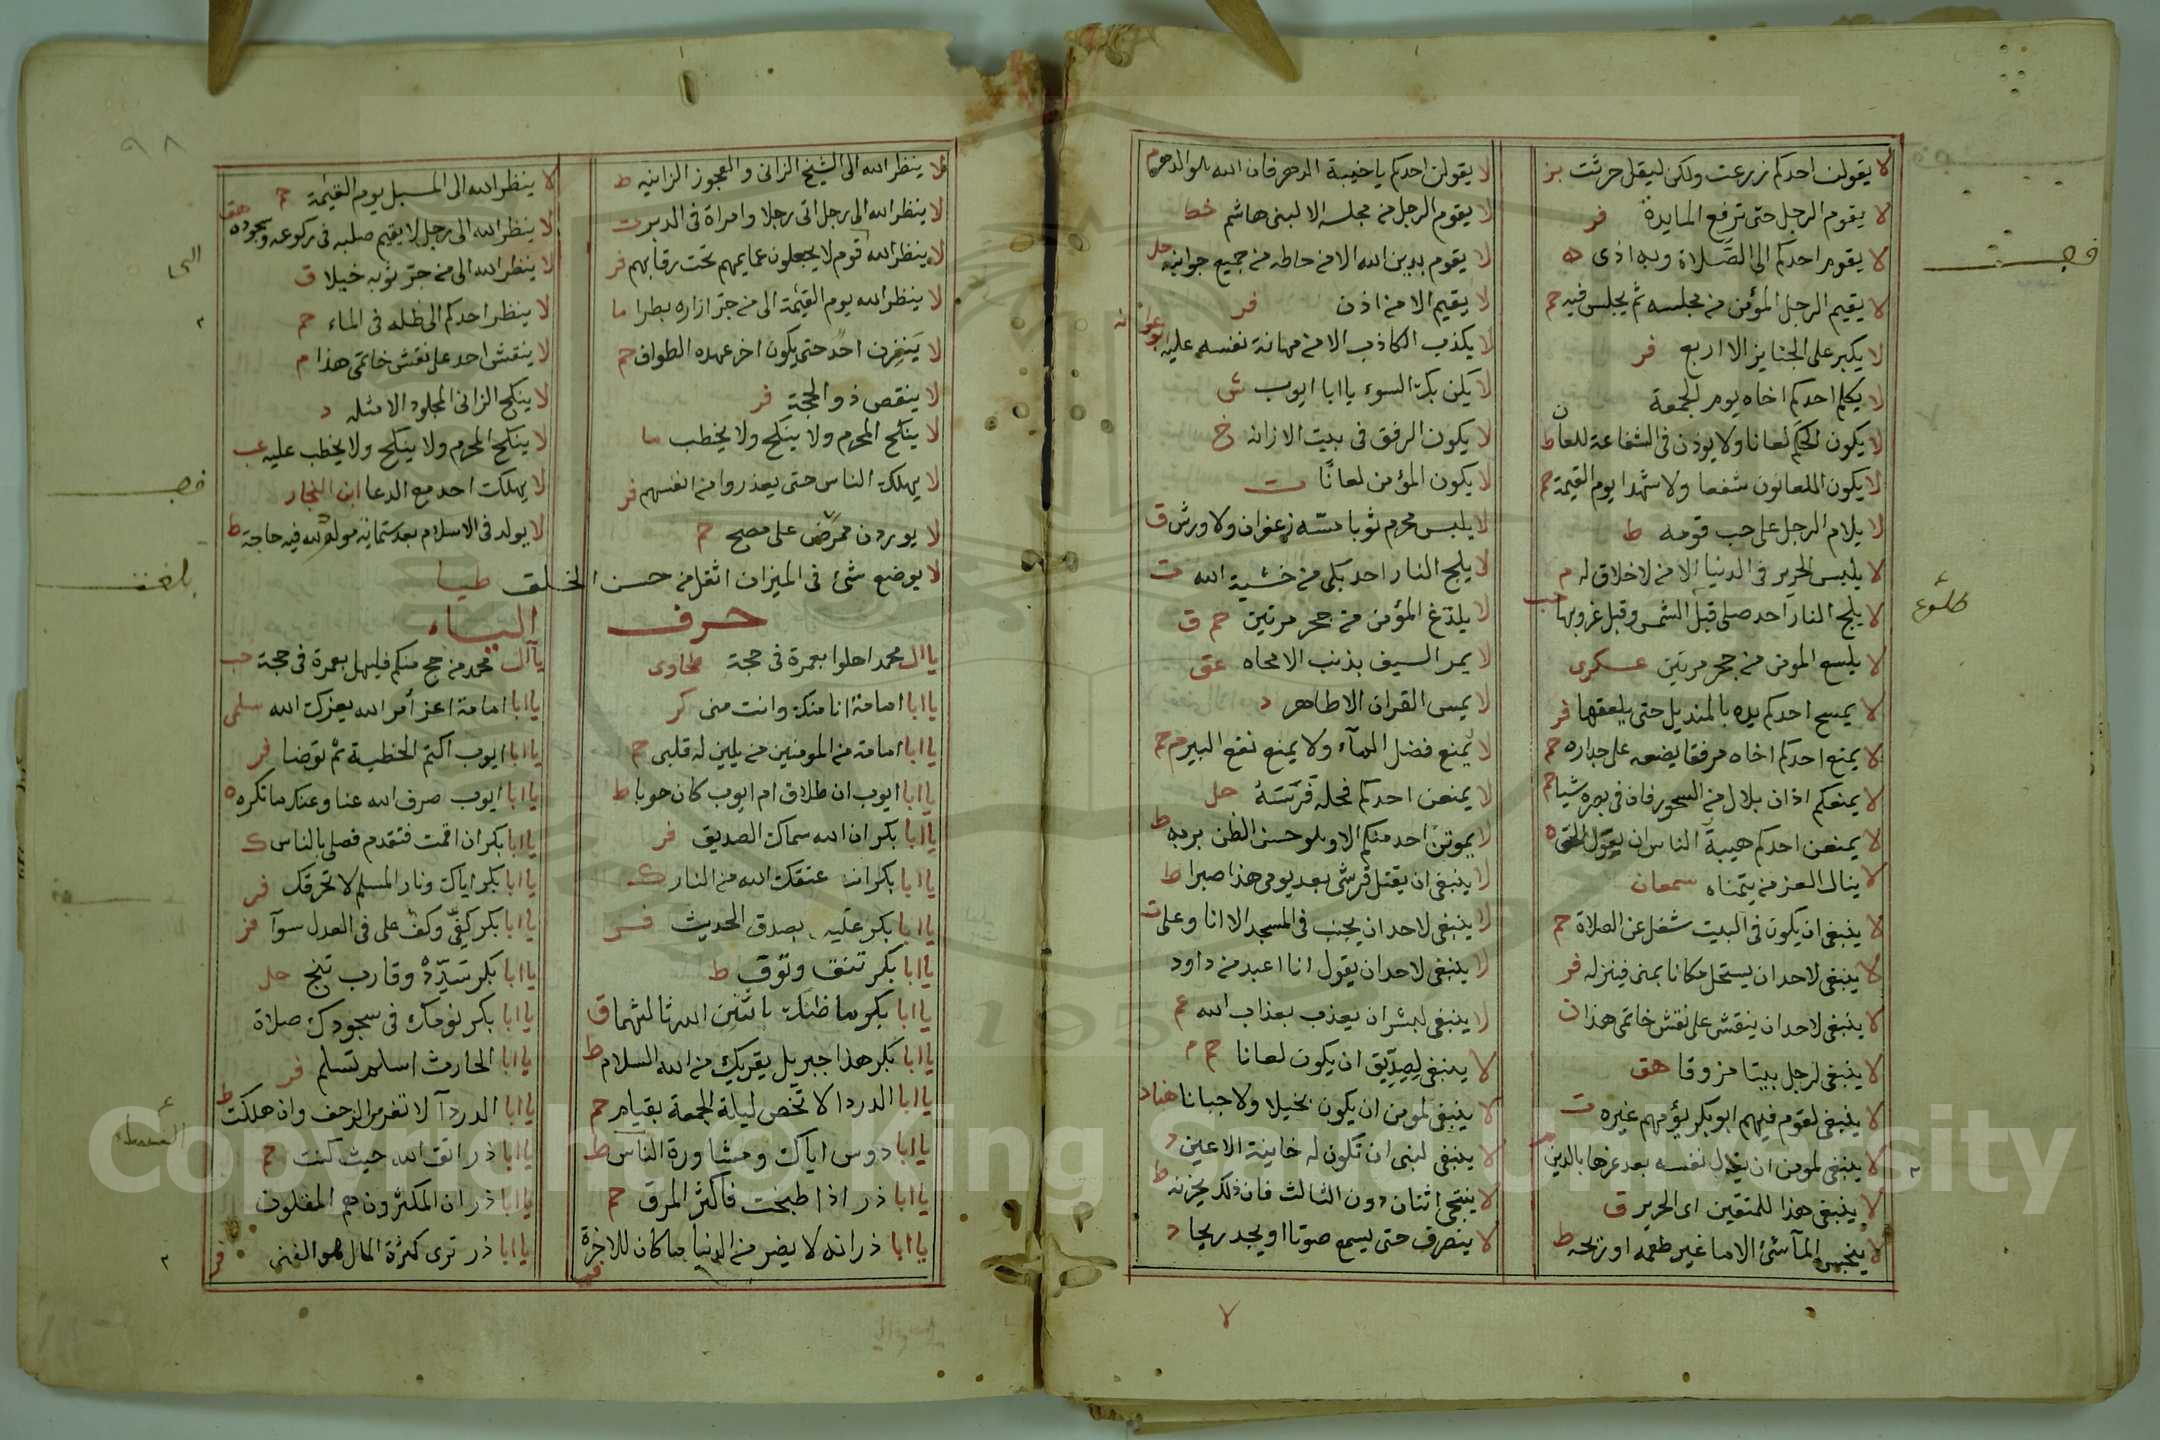 لا يقولن احدكم زرعت ولكن ليقل حرثت بز
لا يقوم الرجل حتى ترفع المايدة فر
لا يقوم احدكم الى الصلاة وبه اذى ه
لا يقيم الرجل المؤمن من مجلسه ثم يجلس فيه حم
لا يكبر على الجنايز الا اربع فر
لا يكلم احدكم اخاه يوم الجمعة
لا يكون لعانا ولا يوذن فى الشفاعة للعان ط
لا يكون اللعانون شفعا ولا شهدا يوم القيمة حم
لا يلام الرجل على حب قومه ط
لا يلبس الحرير فى الدنيا الا من لا خلاق له م
لا يلج النار احد صلى قبل الشمس وقبل غروبها حب
لا يلسع المومن من جحر مرتين عسكرى
لا يمسح احدكم يده بالمنديل حتى يلعقها فر
لا يمنع احدكم اخاه مرفقا يضعه على جداره حم
لا يمنعكم اذان بلال من السحور فان فى بصره شيا حم
لا يمنعن احدكم هيبة الناس ان يقول الحق ه
لا ينال العز من يتمناه سمعان
لا ينبغى ان يكون فى البيت شغل عن الصلاة حم
لا ينبغى لاحد ان يستحل مكانا بمنى فينزله فر
لا ينبغى لاحد ان ينقش على نقش خاتمى هذا ن
لا ينبغى لرجل بيتا مزوقا هق
لا ينبغى لقوم فيهم ابو بكر يؤمهم غيره ت
لا ينبغى لمومن ان يذل نفسه بعد عزها بالدين
لا ينبغى هذا للمتقين اى الحرير ق
لا ينجس المآ شئ الا ما غير طعمه او ريحه ط
لا يقولن احدكم يا خيبة الدهر فان الله هو الدهر م
لا يقوم الرجل من مجلسه الا لبنى هاشم خط
لا يقوم بدين الله الا من حاطه من جميع جوانبه حل
لا يقيم الا من اذن فر
لا يكذب الكاذب الا من مهانة نفسه عليه
لا يكن بك السوء يا ابا ايوب ش
لا يكون الرفق فى بيت الا زانه خ
لا يكون المؤمن لعانًا ت
لا يلبس محرم ثوبا مسّه زعفران ولا ورش ق
لا يلج النار احد بكى من خشية الله ت
لا يلدغ المؤمن من جحر مرتين حم ق
لا يمر السيف بذنب الا محاه عق
لا يمس القران الا طاهر د
لا يمنع فضل المآء ولا يمنع نقع البير م حم
لا يمنعن احدكم فحله فرسه حل
لا يموتن احد منكم الا وهو حسن الظن بربه ط
لا ينبغى ان يقتل قرشى بعد يومى هذا صبرا ط
لا ينبغى لاحد ان يجنب فى المسجد الا انا وعلى ت
لا ينبغى لاحد ان يقول انا اعبد من داود
لا ينبغى لبشر ان يعذب بعذاب الله عم
لا ينبغى لصديق ان يكون لعانا حم م
لا ينبغى لمومن ان يكون بخيلا ولا جبانا هناد
لا ينبغى لنبى ان تكون له خاينة الاعين د
لا ينتجى اثنان دون الثالث فان ذلك يحزنه ط
لا ينصرف حتى يسمع صوتا او يجد ريحا د
طلوع
لا ينظر الله الى الشيخ الزانى والعجوز الزانيه ط
لا ينظر الله الى رجل اتى رجلا وامراة فى الدبر ت
لا ينظر الله قوم لا يجعلون عمايمهم تحت رقابهم فر
لا ينظر الله يوم القيمة الى من جر ازاره بطرا ما
لا ينفرن احد حتى يكون اخر عهده الطواف حم
لا ينقص ذو الحجة فر
لا ينكح المحرم ولا ينكح ولا يخطب ما
لا يهلك الناس حتى يعذروا من انفسهم فر
لا يوردن ممرض على مصح ح
لا يوضع شئ فى الميزان اثقل من حسن الخلق طيا
لا ينظر الله الى المسبل يوم القيمة ح
لا ينظر الله الى رجل لا يقيم صلبه فى ركوعه وسجوده هق
لا ينظر الله الى من جر ثوبه خيلا ق
لا ينظر احدكم الى ظله فى الماء حم
لا ينقش احد على نقش خاتمى هذا م
لا ينكح الزانى المجلود الا مثله د
لا ينكح المحرم ولا ينكح ولا يخطب عليه عب
لا يهلك احد مع الدعا ابن النجار
لا يولد فى الاسلام بعد ستماية مولود لله فيه حاجة ط
حرف الياء
يا ال محمد اهلوا بعمرة فى حجة طحاوى
يا ابا امامة انا منك وانت منى كر
يا ابا امامة من المومنين من يلين له قلبى ح
يا ابا ايوب ان طلاق ام ايوب كان حوبا ط
يا ابا بكر ان الله سماك الصديق فر
يا ابا بكر انت عتقك الله من النار ك
يا ابا بكر عليه بصدق الحديث فر
يا ابا بكر تنق وتوق ط
يا ابا بكر ما ظنك باثنين الله ثالثهما ق
يا ابا بكر هذا جبريل يقريك من الله السلام ط
يا ابا الدردا لا تخص ليلة الجمعة بقيام حم
يا ابا دوس اياك ومشاورة الناس ط
يا ابا ذر اذا طبخت فاكثر المرق ح
يا ابا ذر انه لا يضر من الدنيا ما كان للاخرة فر
يا آل محمد من حج منكم فليهل بعمرة فى حجة حب
يا ابا امامة اعز أمر الله يعزك الله سلمى
يا ابا ايوب اكتم الخطبة ثم توضا فر
يا ابا ايوب صرف الله عنا وعنك ما تكره ه
يا ابا بكر ان اقمت فتقدم فصلى بالناس ك
يا ابا بكر اياك ونار المسلم لا تحرقك فر
يا ابا بكر كفى وكف على فى العدل سوآ فر
يا ابا بكر سدد وقارب تنج حل
يا ابا بكر نومك فى سجودك صلاة
يا ابا الحارث اسلم تسلم فر
يا ابا الدردآ لا تفر من الزحف وان هلكت ط
يا ابا ذر اتق الله حيث كنت ح
يا ابا ذر ان المكثرون هم المقلون
يا ابا ذر ترى كثرة المال هو الغنى فر
٩٨
Copyright © King Saud University